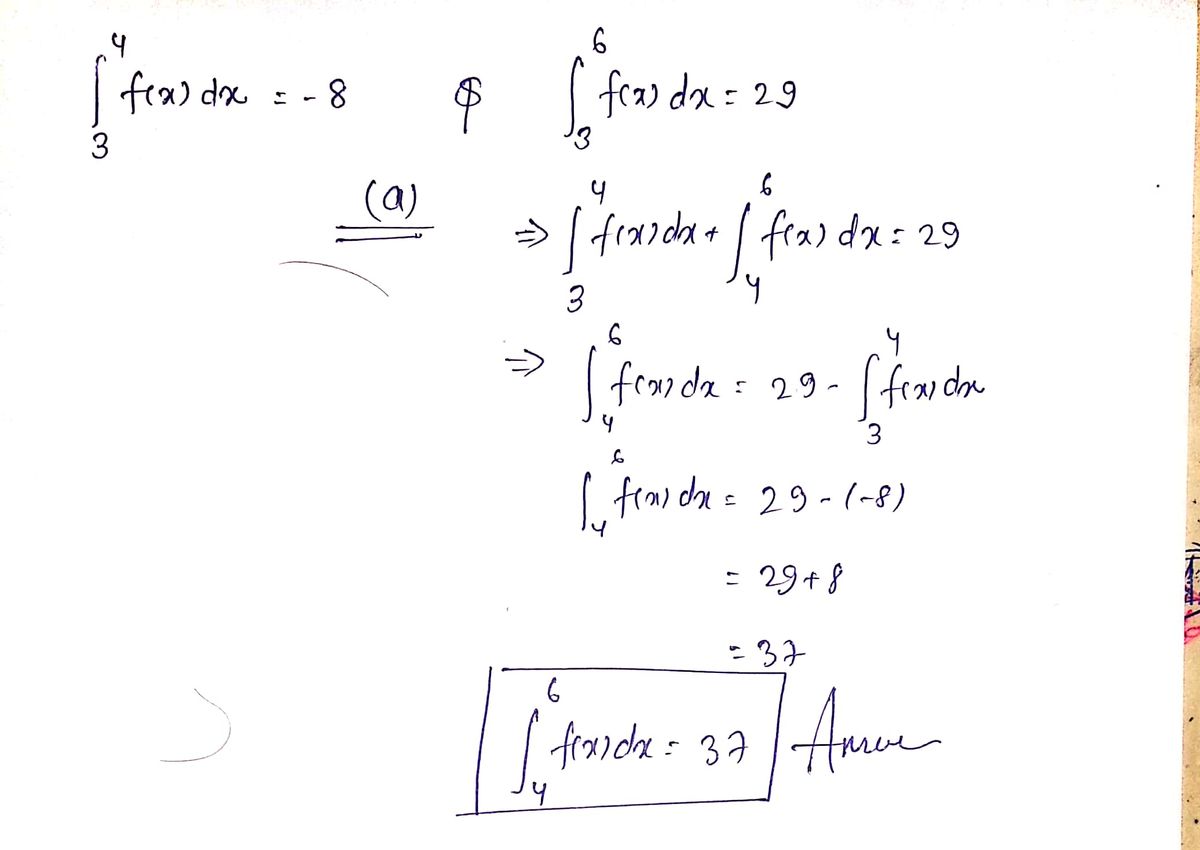 ∫₃⁴ f(x) dx = -8 & ∫₃⁶ f(x) dx = 29
(a) ⇒ ∫₃⁴ f(x) dx + ∫₄⁶ f(x) dx = 29
⇒ ∫₄⁶ f(x) dx = 29 - ∫₃⁴ f(x) dx
∫₄⁶ f(x) dx = 29 - (-8)
= 29 + 8
= 37
∫₄⁶ f(x) dx = 37